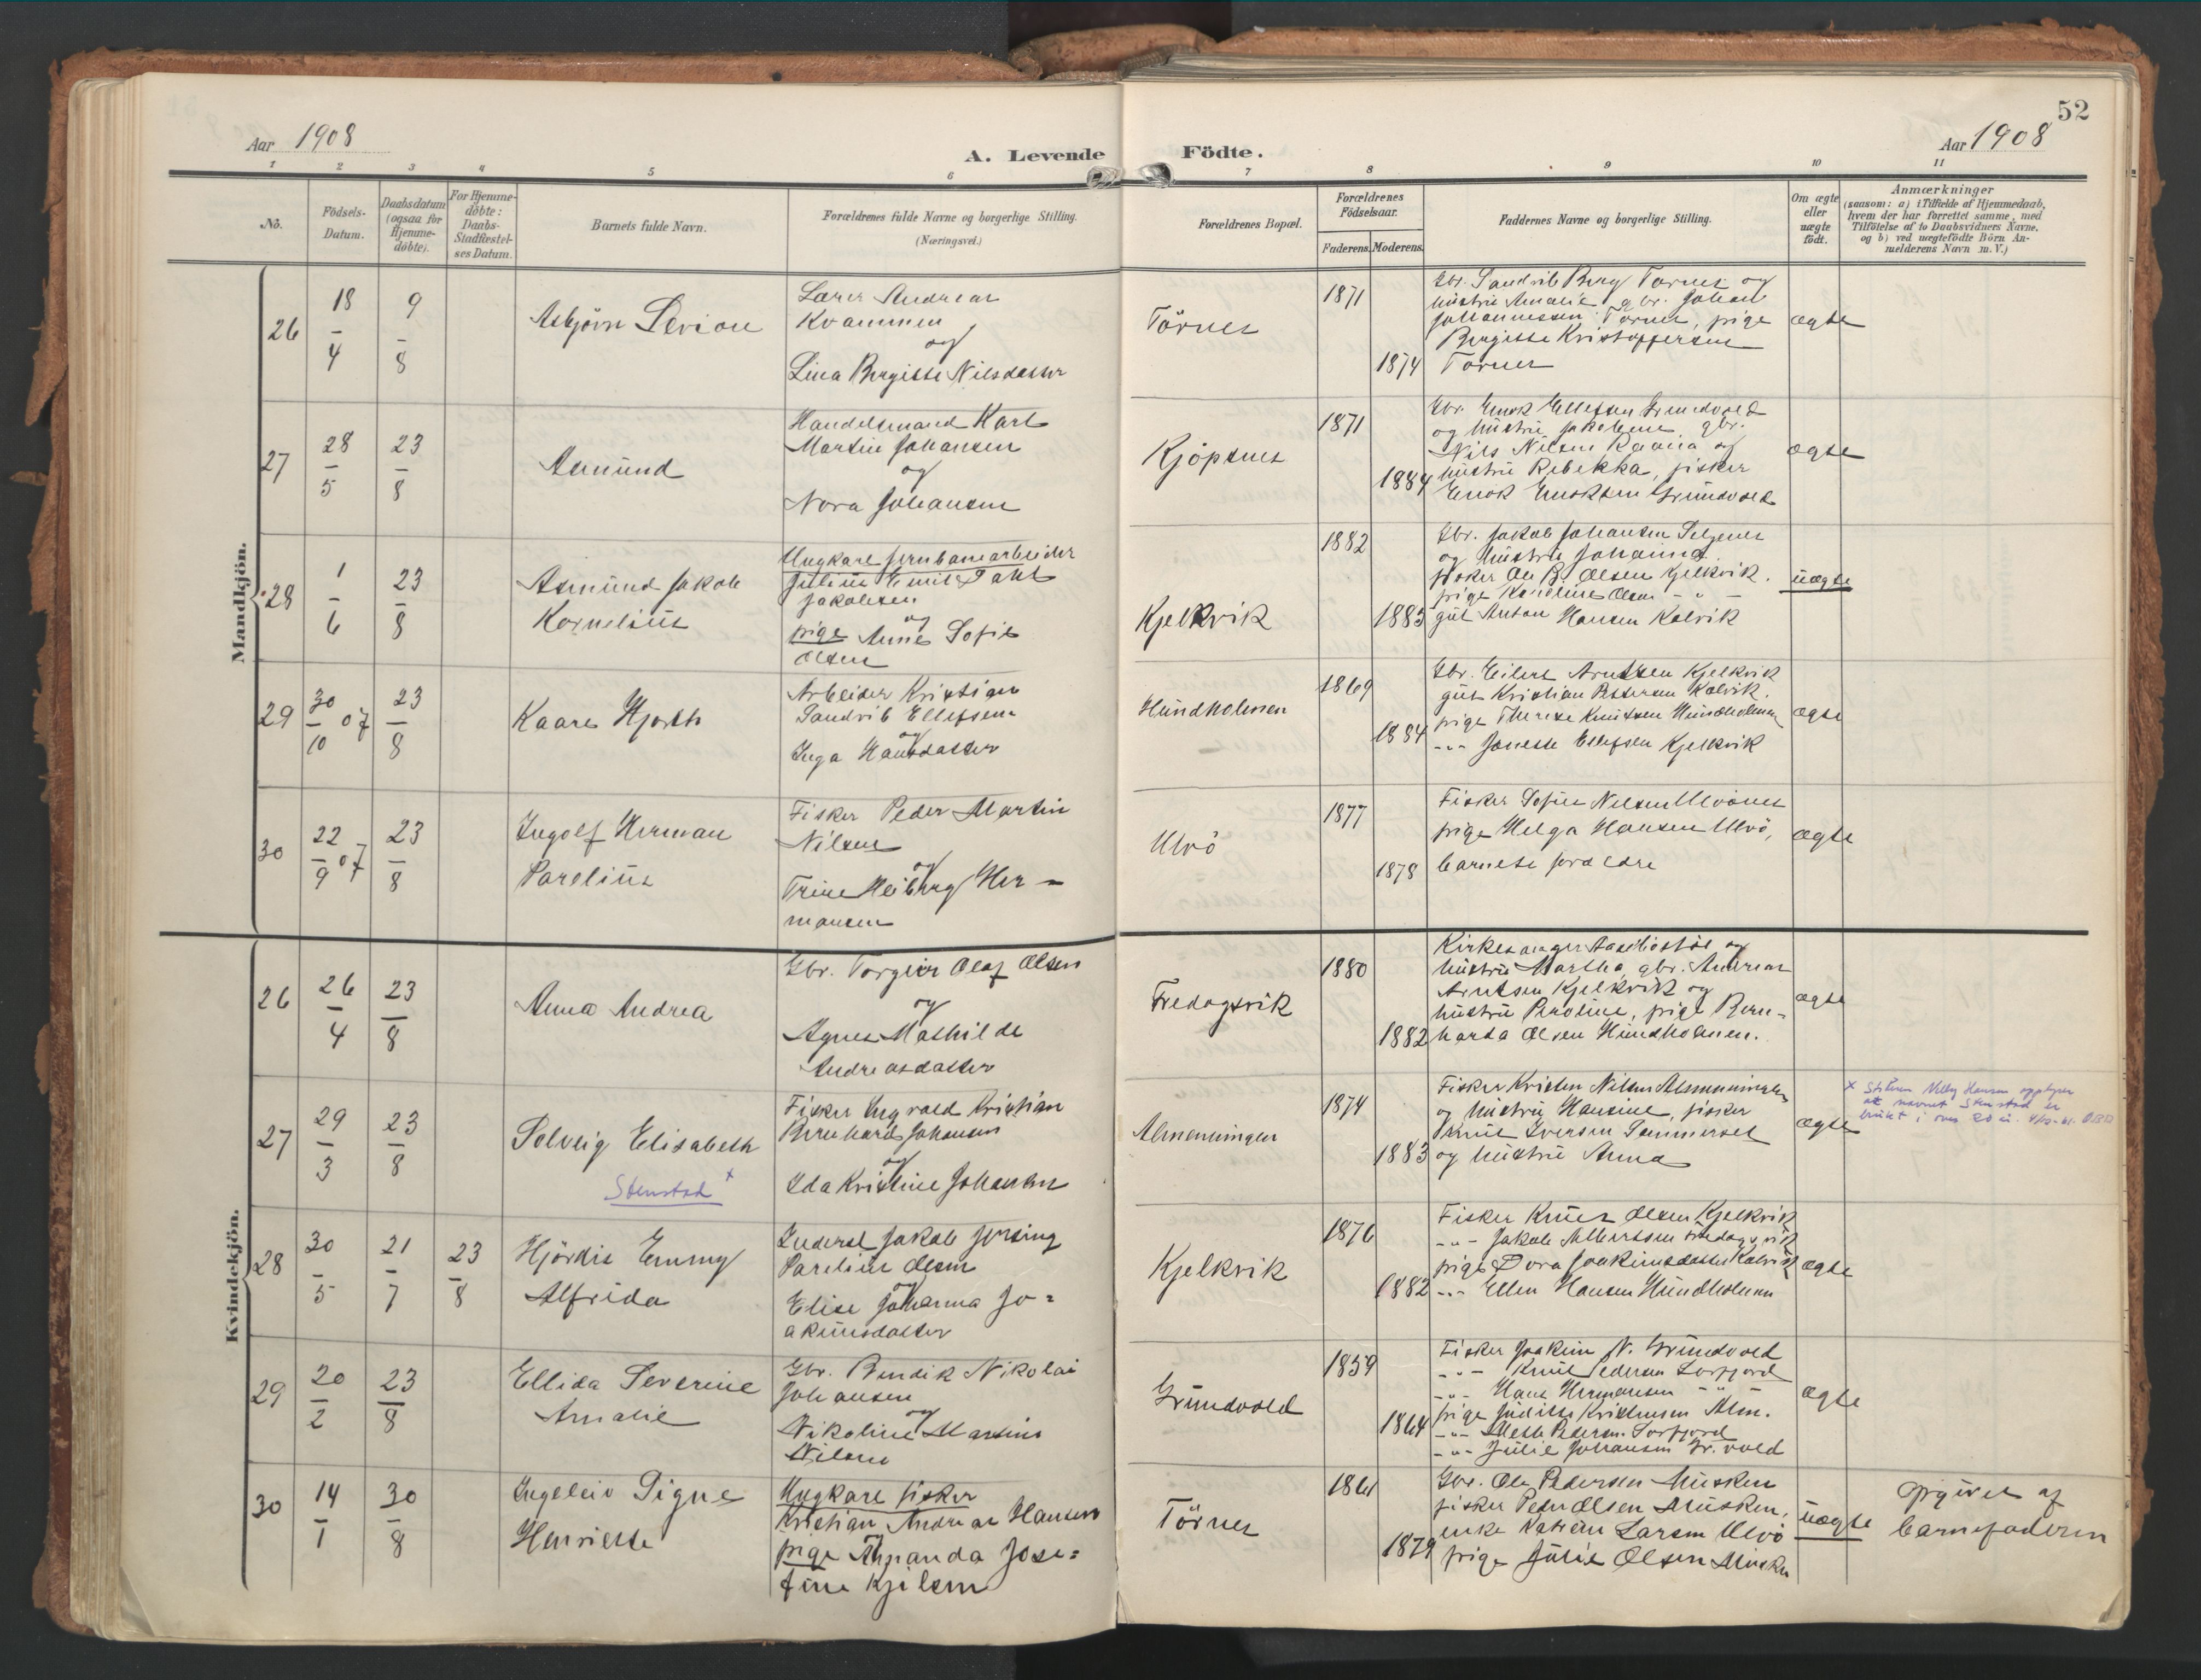 52
Aar 1908
A. Levende Födte.
Aar 1908
1 2 3 4 5 6 7 8 9 10 11
No.
Födsels-
Datum.
Daabsdatum
(ogsaa for
Hjemme-
döbte).
For Hjemme-
döbte:
Daabs-
Stadfæstel-
ses Datum.
Barnets fulde Navn.
Forældrenes fulde Navne og borgerlige Stilling.
(Næringsvei.)
Forældrenes Bopæl.
Forældrenes
Födselsaar.
Faderens.
Moderens.
Faddernes Navne og borgerlige Stilling.
Om ægte
eller
uægte
födt.
Anmærkninger
(saasom: a) i Tilfælde af Hjemmedaab,
hvem der har forrettet samme, med
Tilföielse af to Daabsvidners Navne.
og b) ved uægtefödte Börn An-
melderens Navn m. V.)
Mandkjön.
26
18/4
9/8
Asbjörn Sevion
Lærer Andreas
Kvammen
og
Lina Bergitte Nilsdatter
Törnes
1871
1874
Gbr. Sandrik Berg Tørnes og
hustru Amalie, gbr. Johan
Johannessen Tørnes, pige
Bergitte Kristoffersen
Tørnes
ægte
27
28/5
23/8
Asmund
Handelsmand Karl
Martin Johansen
og
Nora Johansen
Kjöpsnes
1871
1884
Gbr. Enok Ellefsen Grundvold
og hustru Jakobine, gbr.
Nils Nilsen Raania og
hustru Rebekka, fisker
Enok Enoksen Grundvold
ægte
28
1/6
23/8
Asmund Jakob
Kornelius
Ungkarl jernbanearbeider
Julius Emil Dahl
Jakobsen
og
pige Anne Sofie
Olsen
Kjelkvik
1882
1883
Gbr. Jakob Johansen Seljenes
og hustru Johanna
fisker Ole B. Olsen Kjelkvik.
pige Karoline Olsen - " -
gut Anton Hansen Kalvik
uægte
29
30/10 07
23/8
Kaare Hjorth
Arbeider Kristian
Sandrik Ellefsen
og
Inga Hansdatter
Hundholmen
1869
1884
Gbr. Eilert Arntzen Kjelkvik
gut Kristian Pettersen Kalvik.
pige Therese Knutsen Hundholmen
- " - Janette Ellefsen Kjelkvik
ægte
30
22/9 07
23/8
Ingolf Herman
Parelius
Fisker Peder Martin
Nilsen
og
Trine Heiberg Her-
mansen
Ulvö
1877
1878
Fisker Sofus Nilsen Ulvönes
pige Helga Hansen Ulvö,
barnets forældre
ægte
Kvindekjön.
26
26/4
23/8
Anna Andrea
Gbr. Torgeir Olaf Olsen
og
Agnes Mathilde
Andreasdatter
Fredagsvik
1880
1882
Kirkesanger
hustru Martha, gbr. Andreas
Arntsen Kjelkvik og
hustru Peroline, pige Bern-
harda Olsen Hundholmen.
ægte
27
29/3
23/8
Solveig Elisabeth
Stenstad x
Fisker Ingvald Kristian
Bernhard Johansen
og
Ida Kristine Johansen
Almenningen
1874
1883
Fisker Kristen Nilsen Almenningen
og hustru Hansine, fisker
Knut Iversen Sommerset
og hustru Anna
ægte
x Nelly Hansen opplyser
at navnet Stenstad er
brukt i over 20 år.
28
30/5
21/7
23/8
Hjördis Emmy
Alfrida
Inderst Jakob Jersing
Parelius Olsen
og
Elise Johanna Jo=
akimsdatter
Kjelkvik
1876
1882
Fisker Knut Olsen Kjelkvik
- " - Jakob Albertsen Fredagsvik
pige Dora Joakimsdatter Kalvik
- " - Ellen Hansen Hundholmen
ægte
29
20/2
23/8
Ellida Severine
Amalie
Gbr. Bendik Nikolai
Johansen
og
Nikoline Martine
Nilsen
Grundvold
1859
1864
Fisker Joakim N. Grundvold
- " - Knut Pedersen Sørfjord
- " - Hans Hermansen - " -
pige Juditte Kristensen Alm.
- " - Mette Pedersen Sørfjord
- " - Julie Johansen Gr.vold
ægte
30
14/1
30/8
Ingeleiv Signe
Henriette
Ungkarl fisker
Kristian Andreas Hansen
og
pige Amanda Jose=
fine Kjilsen
Törnes
1861
1879
Gbr. Ole Pedersen Musken
fisker Peder Olsen Musken,
enke Katrin Larsen Ulvö
pige Julie Olsen Musken
uægte
opgivet af
barnefaderen